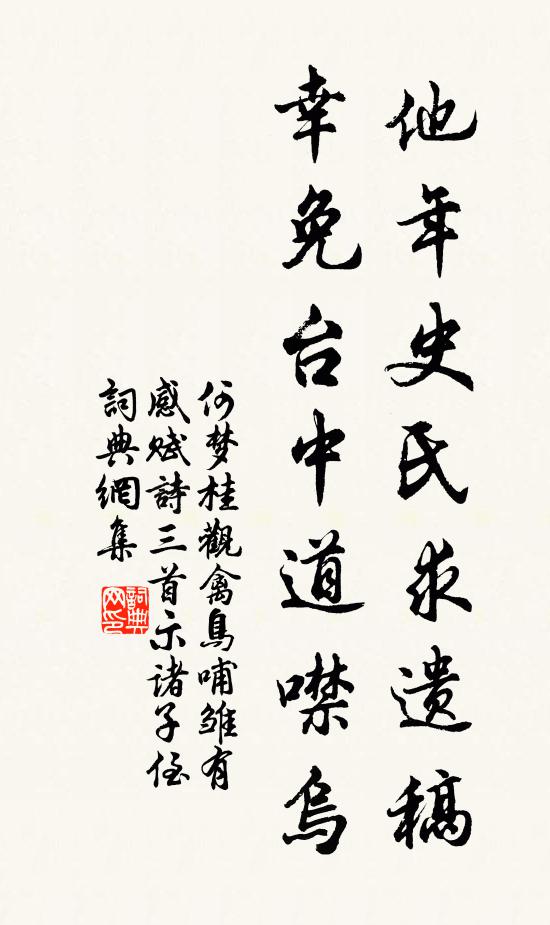 他年史氏求遗稿
幸免台中道噤烏
何梦桂觀禽鳥哺雏有
感赋詩三首示诸子侄
詞典網集
詞典网印